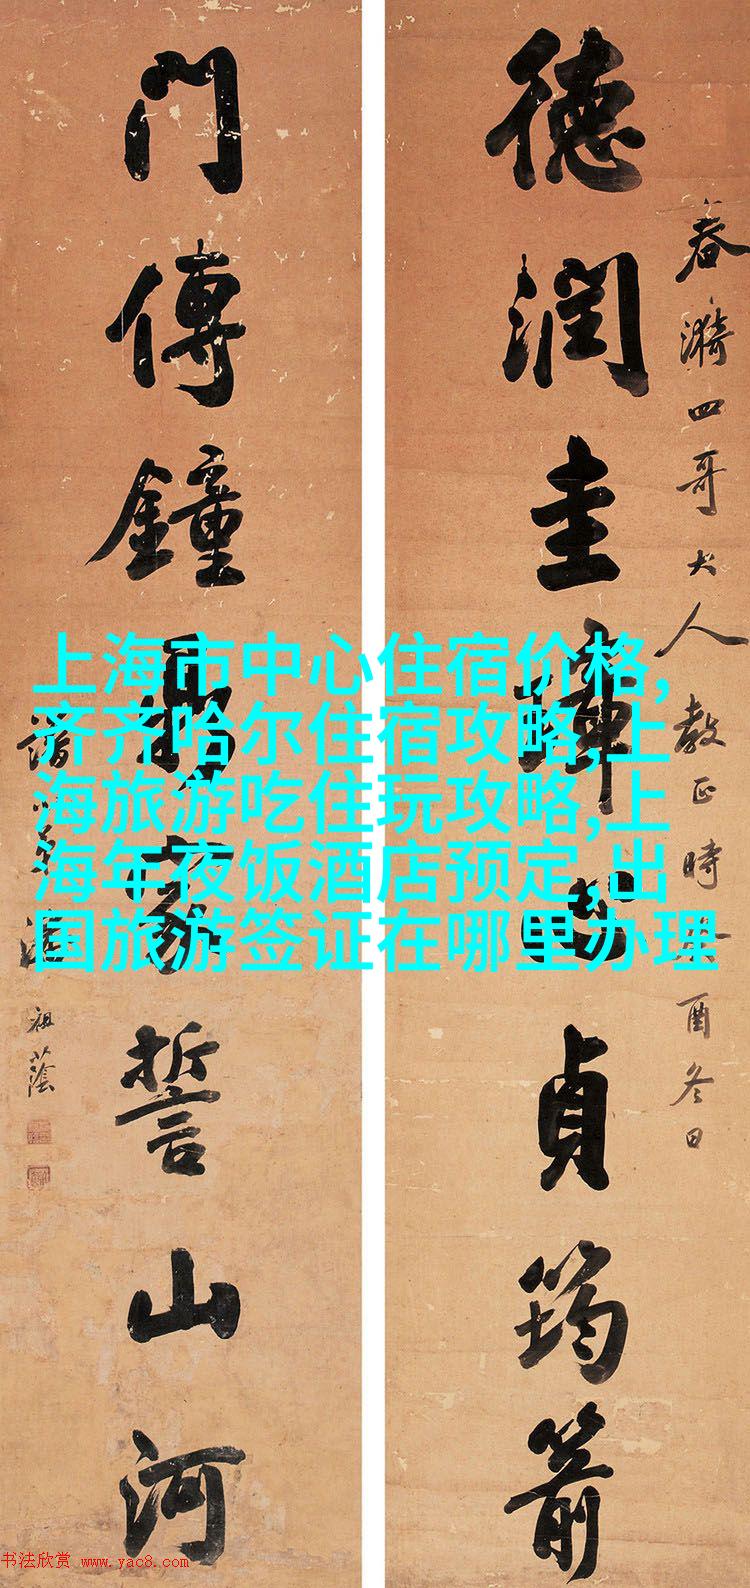 春漪四哥大人教正時癸酉冬日
德潤圭璋心貞筠箭
門傳鐘鼎家誓山河
弟潘祖蔭
上海市中心住宿价格,
齐齐哈尔住宿攻略,上
海旅游吃住玩攻略,上
海年夜饭酒店预定,出
国旅游签证在哪里办理
书法欣赏 www.yac8.com